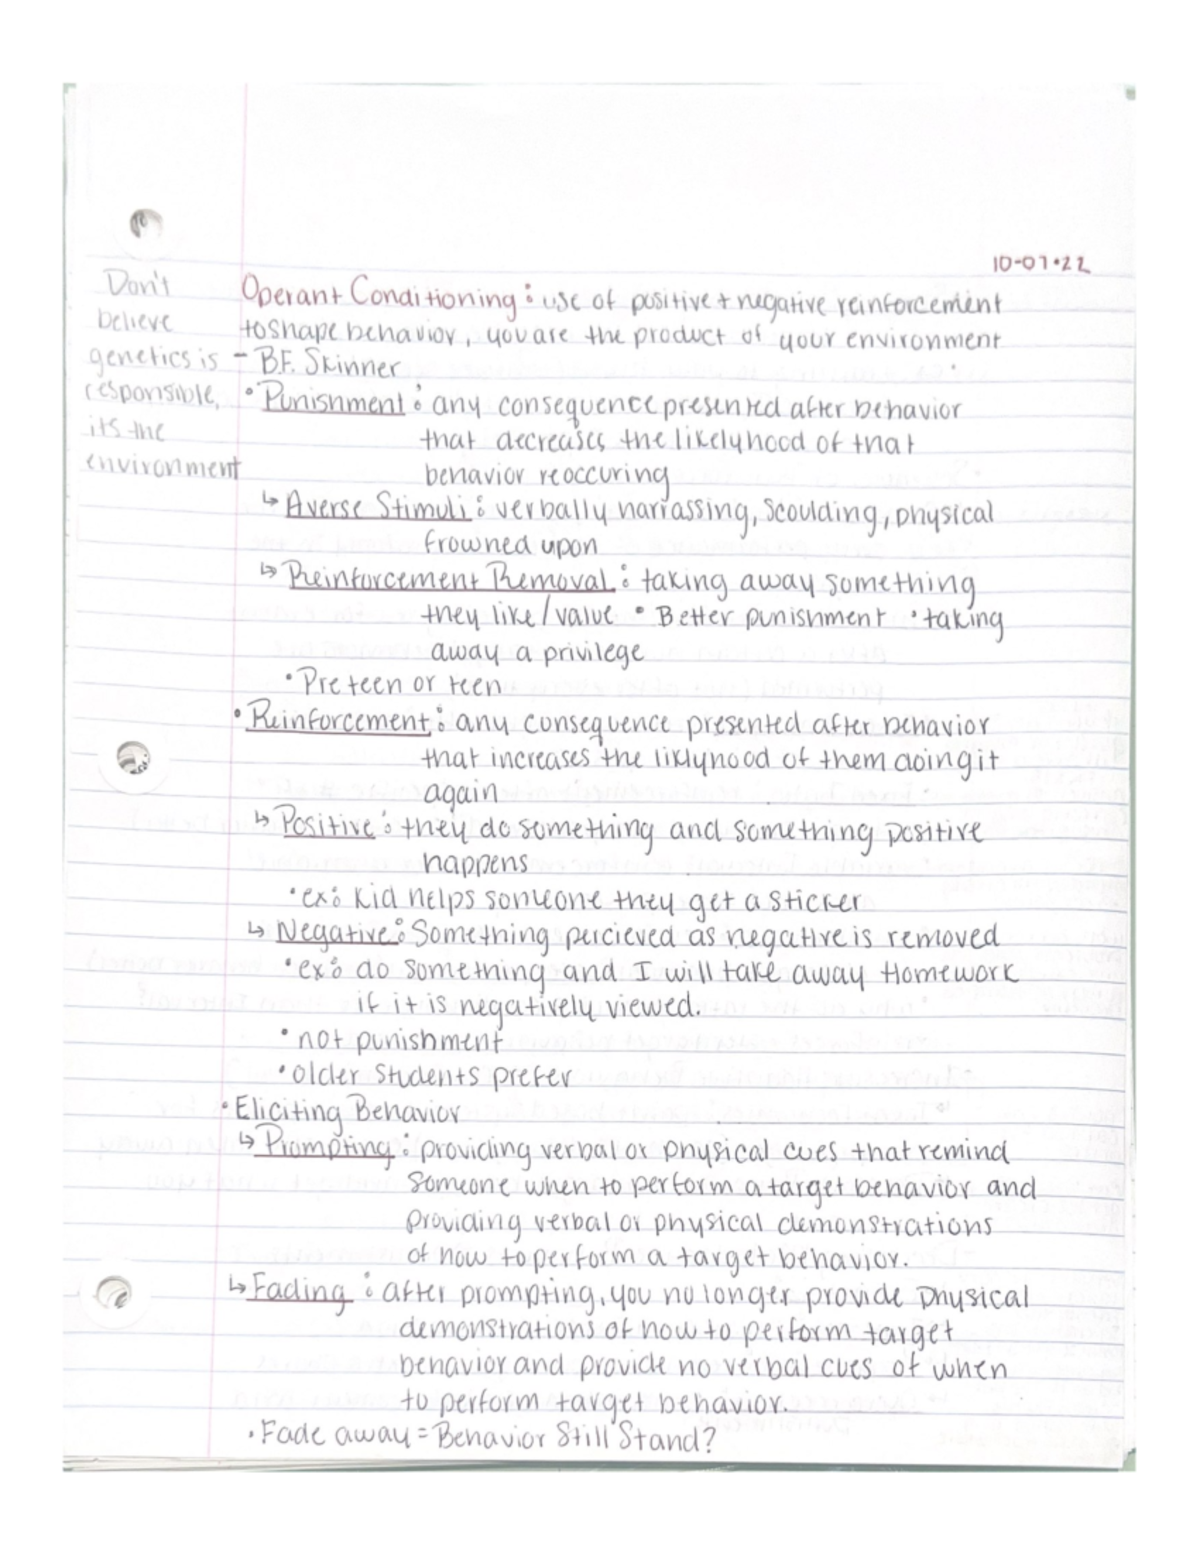 10-07-22
Don't
believe
genetics is
responsible,
its the
environment
Operant Conditioning: use of positive + negative reinforcement
to shape behavior, you are the product of your environment
- B.F. Skinner
• Punishment: any consequence presented after behavior
that decreases the likelyhood of that
behavior reoccuring
↳ Averse Stimuli: verbally harrassing, scoulding, physical
frowned upon
↳ Reinforcement Removal: taking away something
they like/value • Better punishment • taking
away a privilege
• Preteen or teen
• Reinforcement: any consequence presented after behavior
that increases the liklyhood of them doing it
again
↳ Positive: they do something and something positive
happens
• ex: Kid helps someone they get a sticker
↳ Negative: Something percieved as negative is removed
• ex: do something and I will take away Homework
if it is negatively viewed.
• not punishment
• older students prefer
• Eliciting Behavior
↳ Prompting: providing verbal or physical cues that remind
someone when to perform a target behavior and
providing verbal or physical demonstrations
of how to perform a target behavior.
↳ Fading: after prompting, you no longer provide physical
demonstrations of how to perform target
behavior and provide no verbal cues of when
to perform target behavior.
• Fade away = Behavior Still Stand?